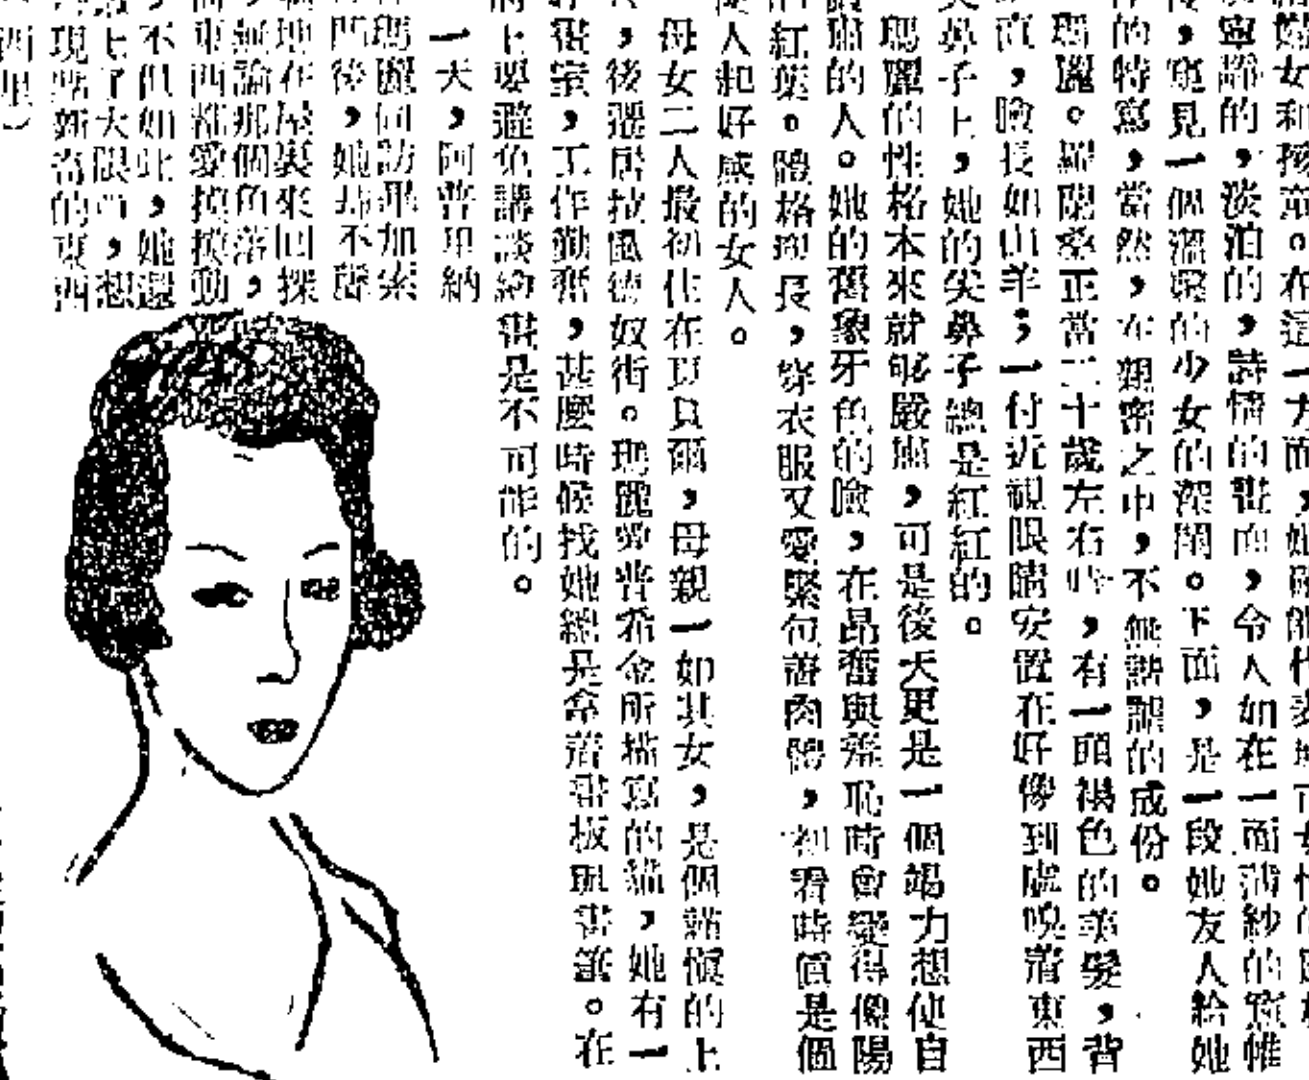 女和孩童。在這一方面,她
寧謐的,淡泊的,詩情的畫面,令人如在一面薄紗的窗帷
,窺見一個溫婉的少女的深閨。下面,是一段她友人給她
的特寫,當然,在親密之中,不無的成份。
瑪麗。羅蘭桑正當二十歲左右時,有一頭褐色的美髮,背
直,臉長如山羊;一付近視眼睛安置在好像到處嗅着東西
尖鼻子上,她的尖鼻子總是紅紅的。
瑪麗的性格本來就够嚴肅,可是後天更是一個竭力想使自
肅的人。她的舊象牙色的臉,在昂奮與羞恥時會變得像陽
的紅葉。體格頎長,穿衣服又愛緊包着肉體,初看時值是個
使人起好感的女人。
母女二人最初住在以貝爾,母親一如其女,是個謹慎的上
,後遷居拉風德奴街。瑪麗愛普希金所描寫的貓,她有一
畫室,工作勤奮,甚麼時候找她總是拿着畫板與畫筆。在
上要避免講談繪畫是不可能的。
一天,阿普里納
瑪麗同訪那加索
門後,她却不聲
地在屋裏來回探
無論那個角落,
東西都愛摸摸動
不但如此,她還
上了大眼,想
現些新奇的東西
西里)